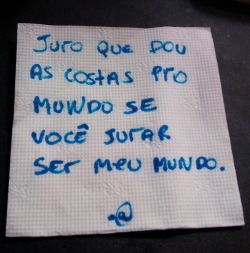 JURO QUE DOU
AS COSTAS PRO
MUNDO SE
VOCÊ JURAR
SER MEU MUNDO.
@